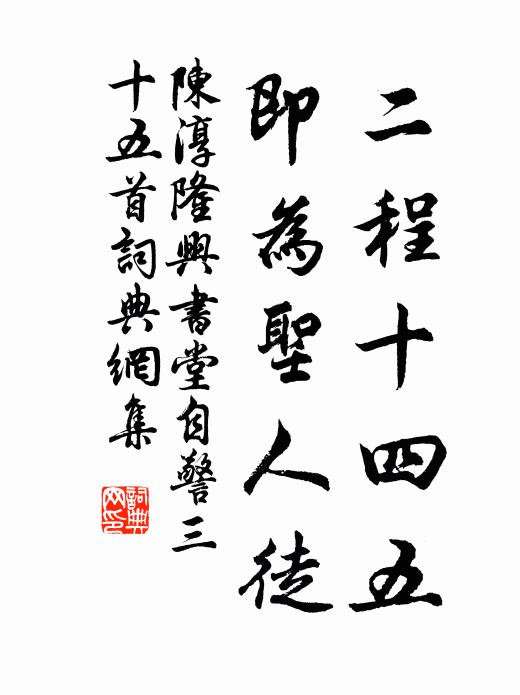 二程十四五
即為聖人徒
陳淳隆興書堂自警三
十五首詞典網集
詞典
网印